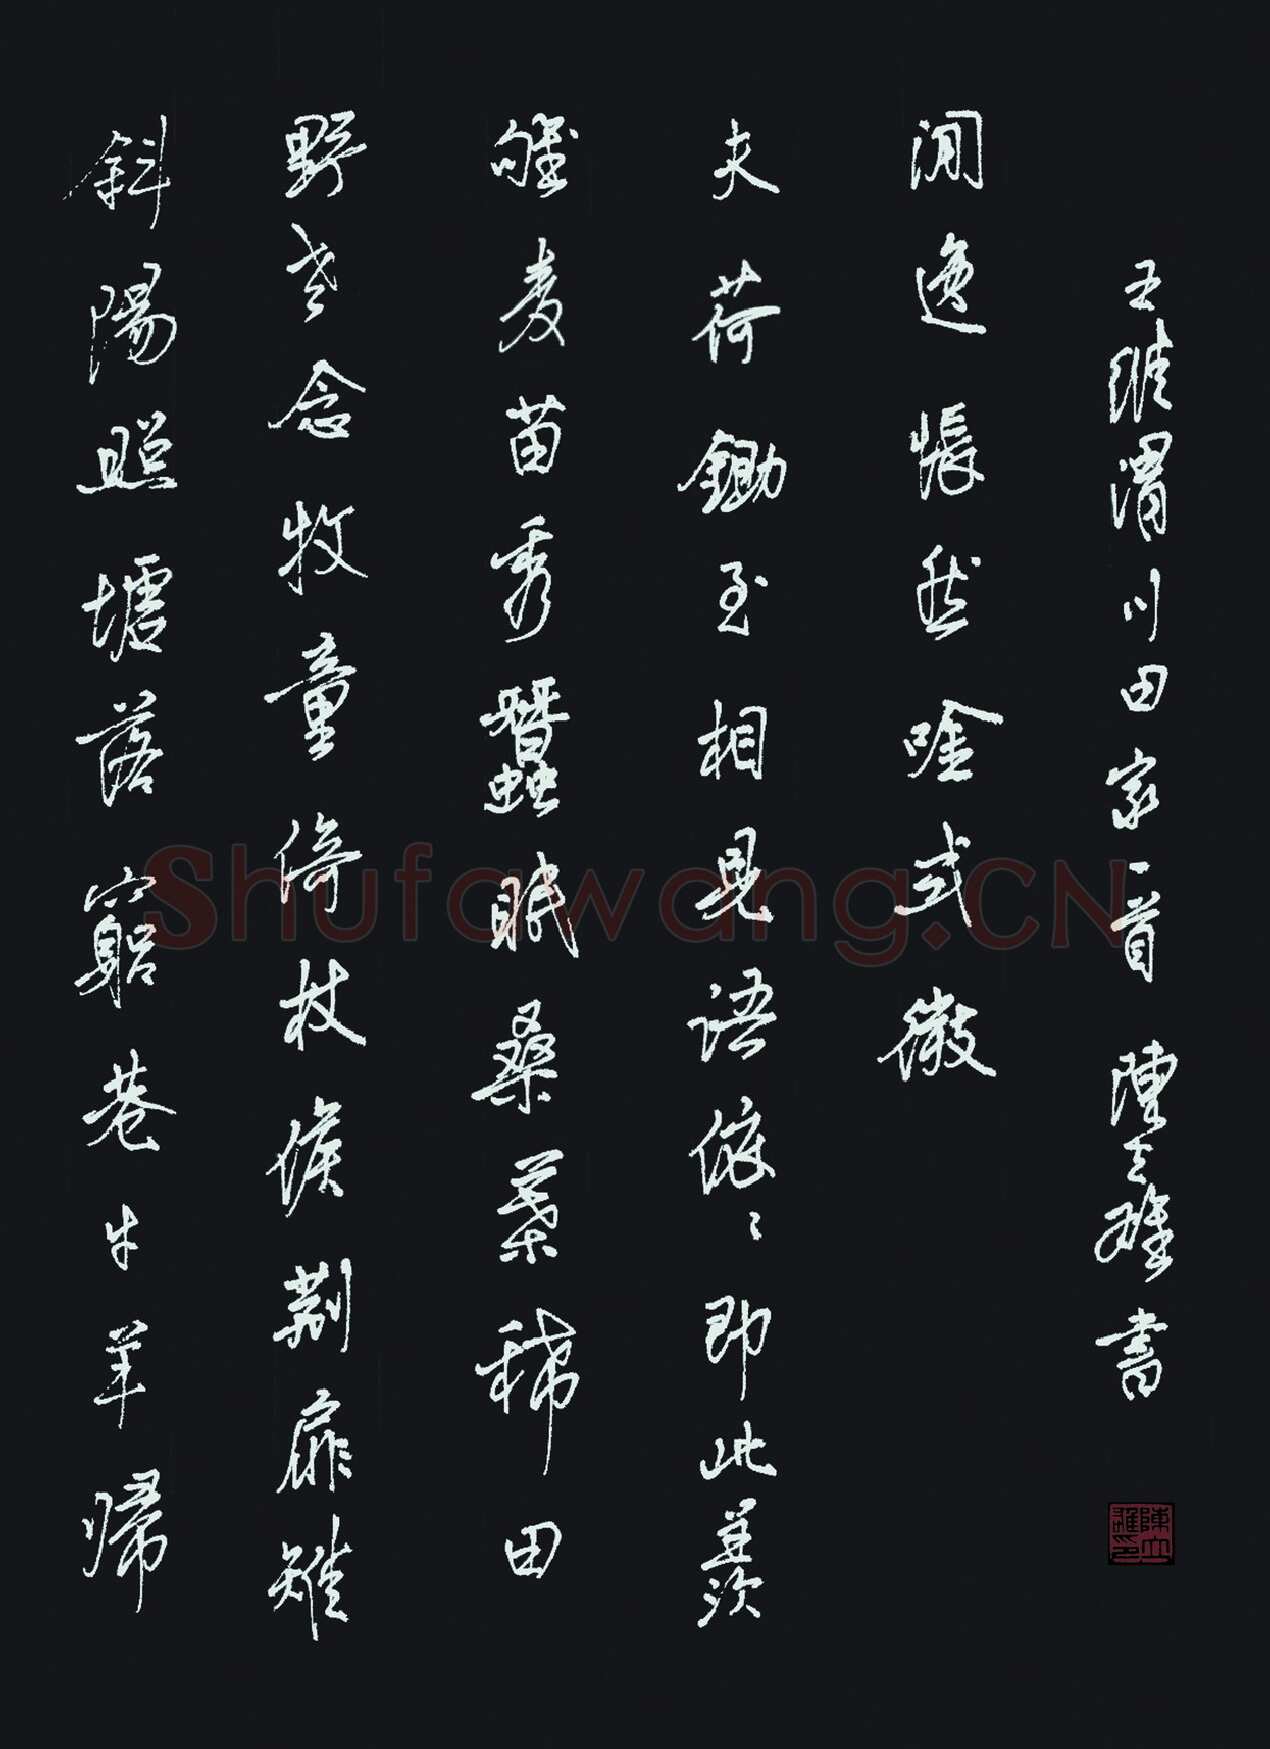 斜陽照墟落窮巷牛羊歸
野老念牧童倚杖候荆扉雉
雊麦苗秀蠶眠桑葉稀田
夫荷鋤至相見語依〻即此羡
閒逸悵然唫式微
王維渭川田家一首 陳立雄書
陳立雄印
Shufawang.CN